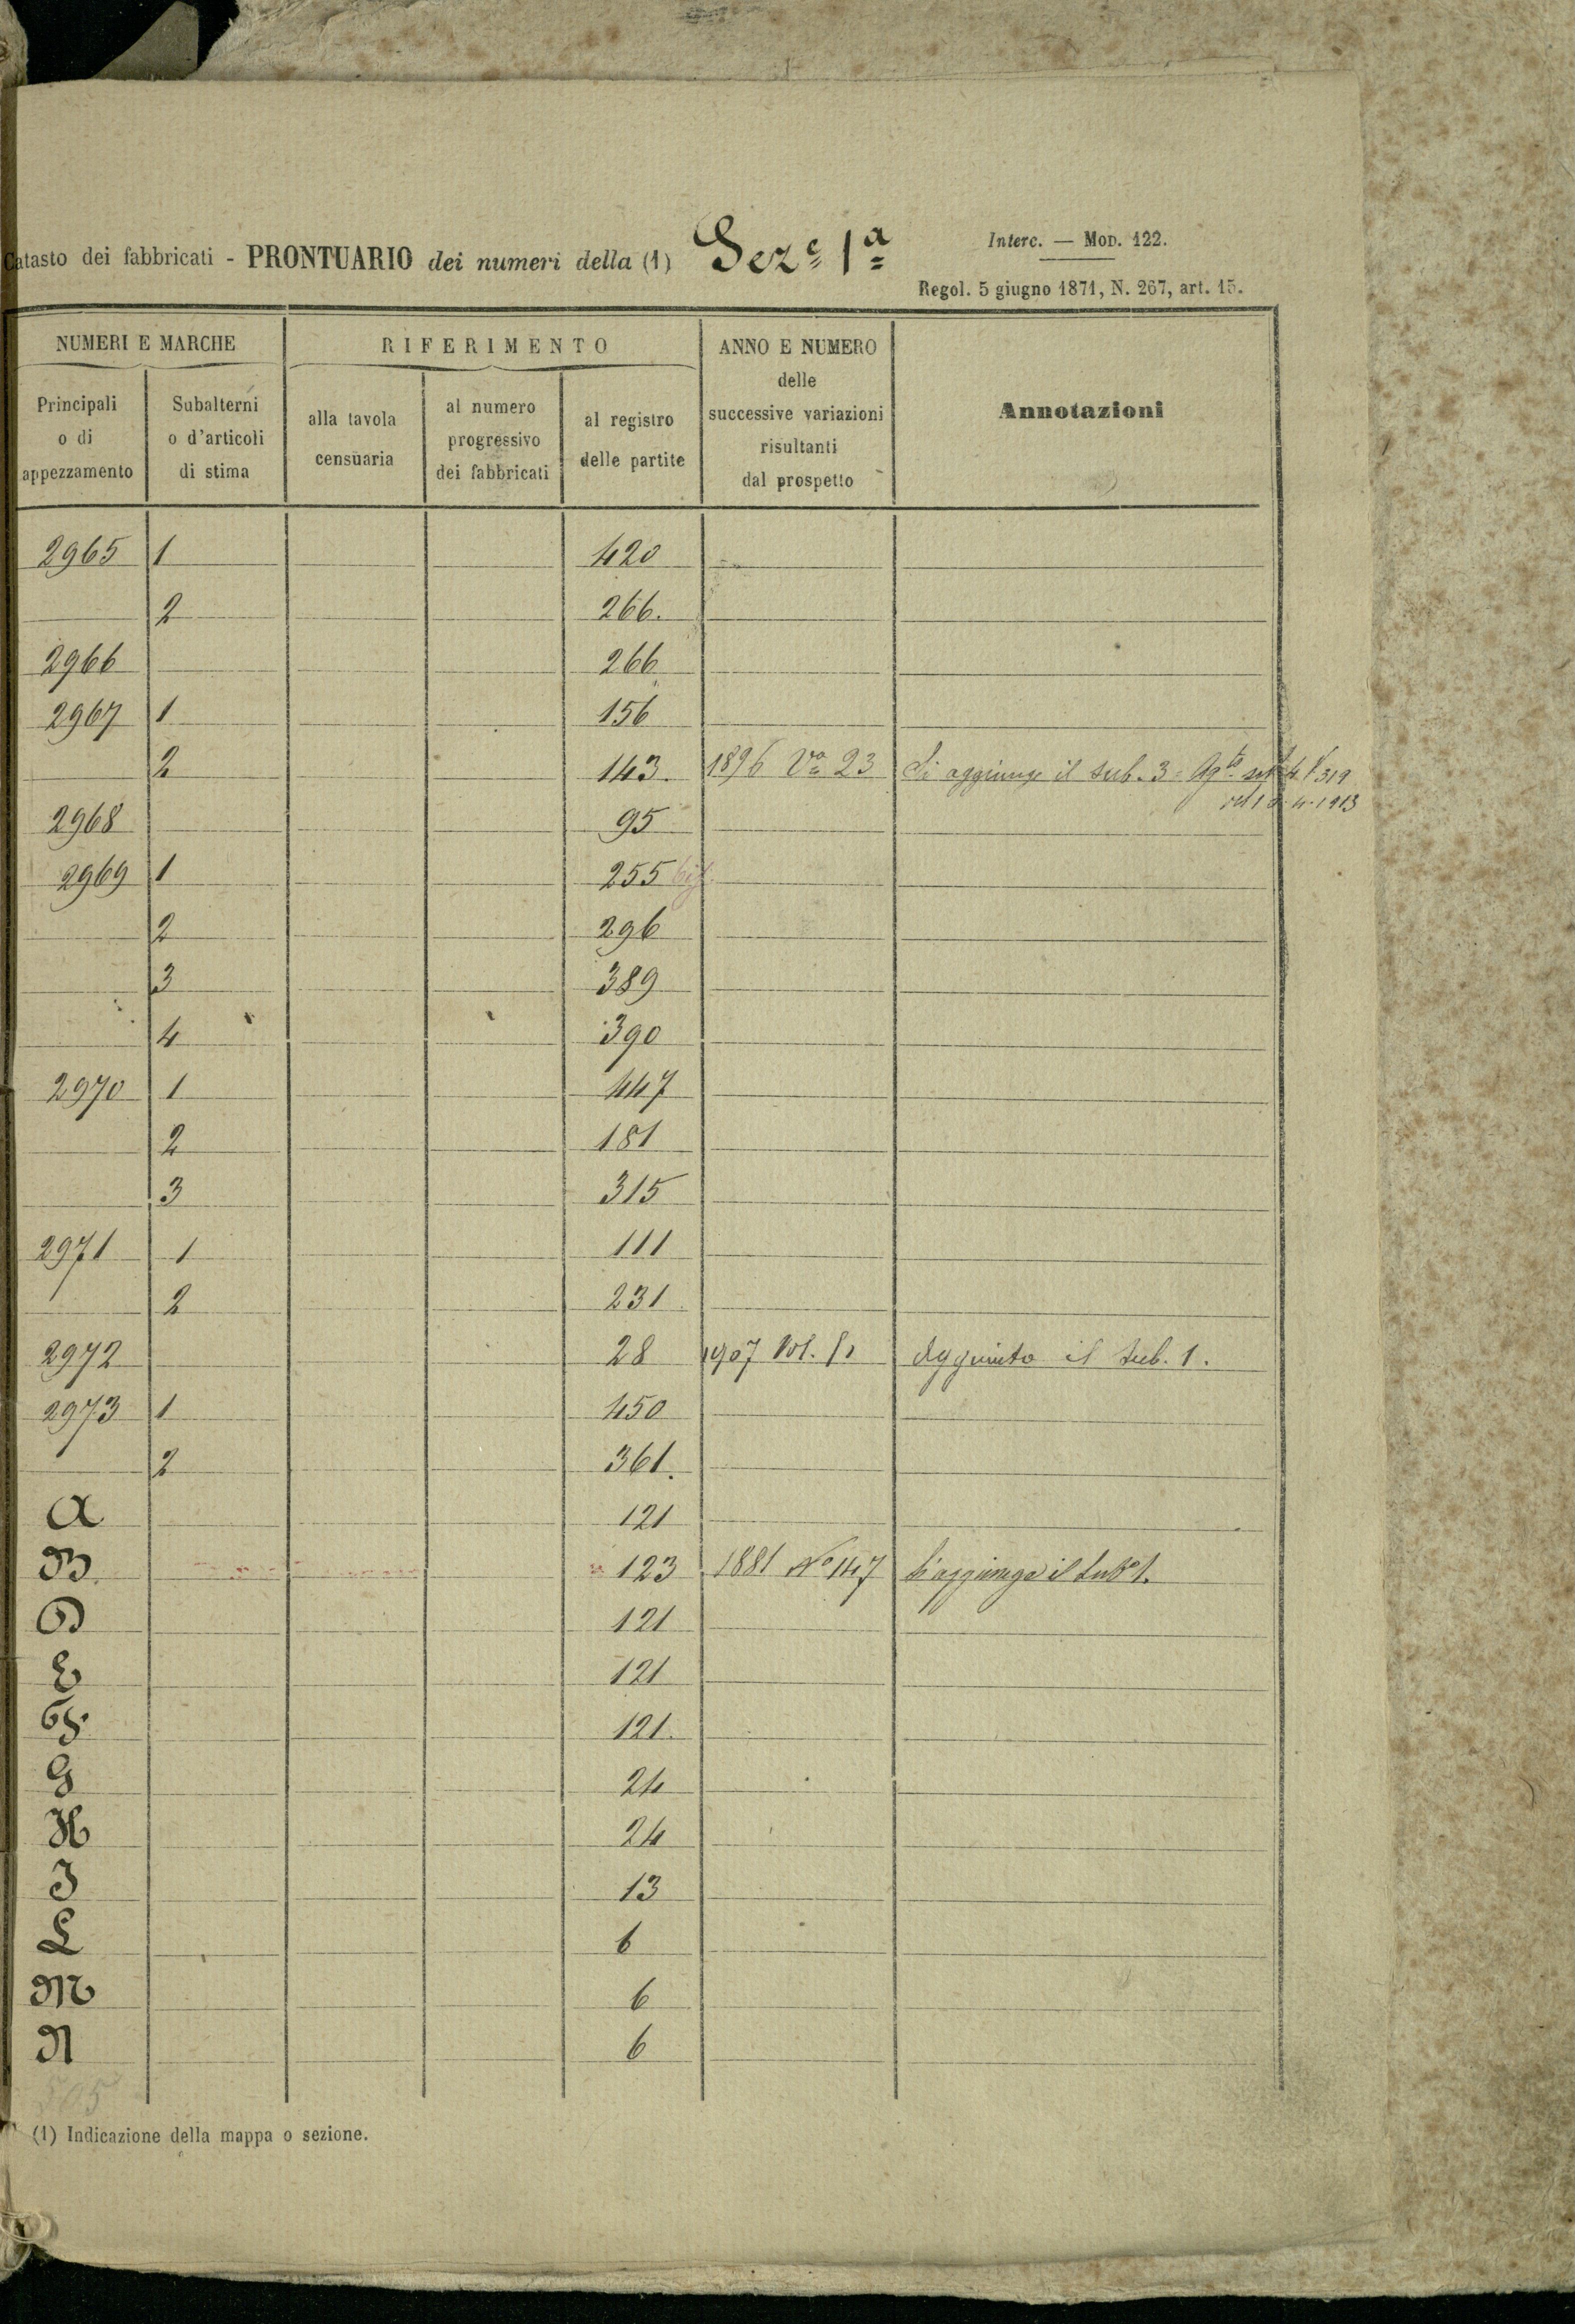 Catasto dei fabbricati - PRONTUARIO dei numeri della (1) Sez.e 1a
Interc. — Mod. 122.
Regol. 5 giugno 1871, N. 267, art. 15.
NUMERI E MARCHE
RIFERIMENTO
ANNO E NUMERO
delle
successive variazioni
risultanti
dal prospetto
Annotazioni
Principali
o di
appezzamento
Subalterni
o d'articoli
di stima
alla tavola
censuaria
al numero
progressivo
dei fabbricati
al registro
delle partite
2965 1 420
2 266.
2966 266
2967 1 156
2 143. 1896 Va 23 Si aggiunge il sub. 3 = 319
4-1913
2968 95
2969 1 255 bis
2 296
3 389
4 390
2970 1 447
2 181
3 315
2971 1 111
2 231
2972 28 1907 Vol. Aggiunto il sub. 1.
2973 1 450
2 361.
A 121
B 123 1881 No 147 Si aggiunge il sub. 1.
D 121
E 121
F. 121.
G 24
H 24
I 13
L 6
M 6
N 6
505
(1) Indicazione della mappa o sezione.